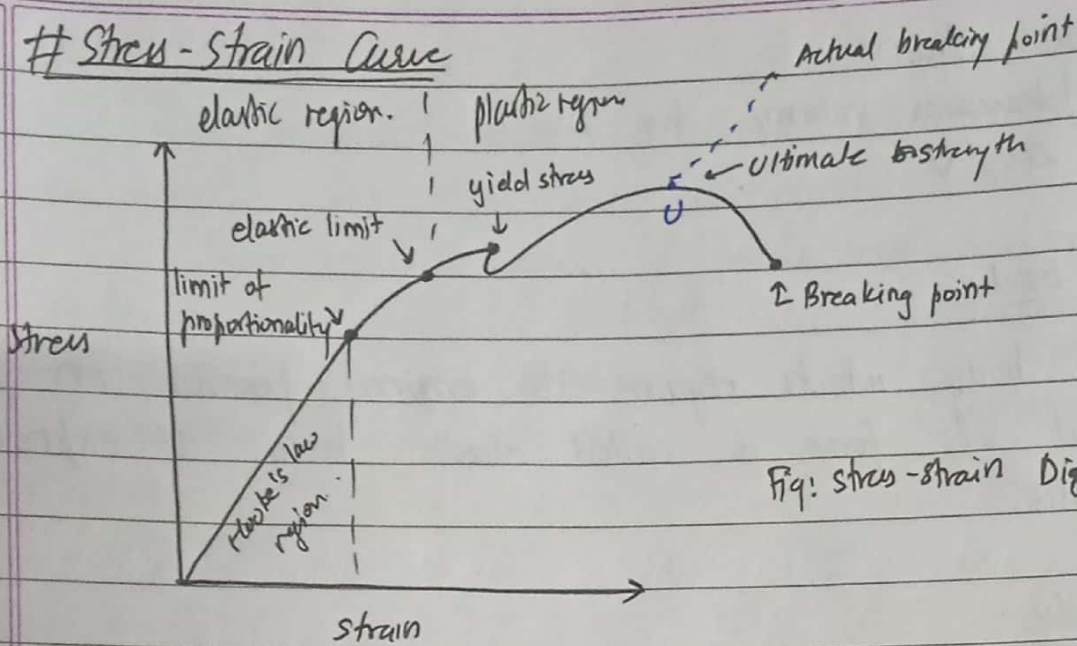 # Stress-Strain Curve
Actual breaking point
elastic region.
plastic region
Ultimate strength
yield stress
U
elastic limit
limit of
proportionality
Breaking point
Stress
Hooke's law
region.
Fig: stress-strain Dig
strain